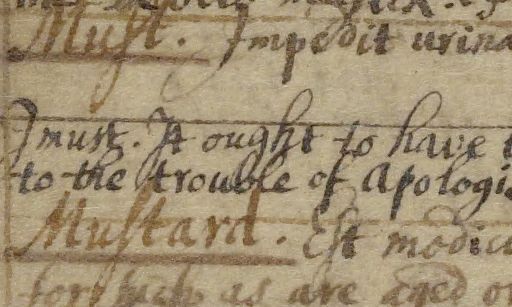 Must. Impedit urina
I must. It ought to have
to the trouble of Apologi
Mustard. Est modic
for such as are aged or